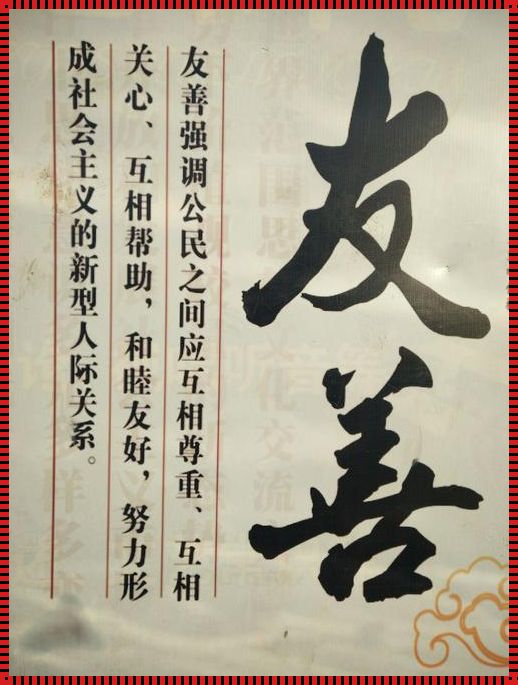 友善
友善强调公民之间应互相尊重、互相
关心、互相帮助，和睦友好，努力形
成社会主义的新型人际关系。